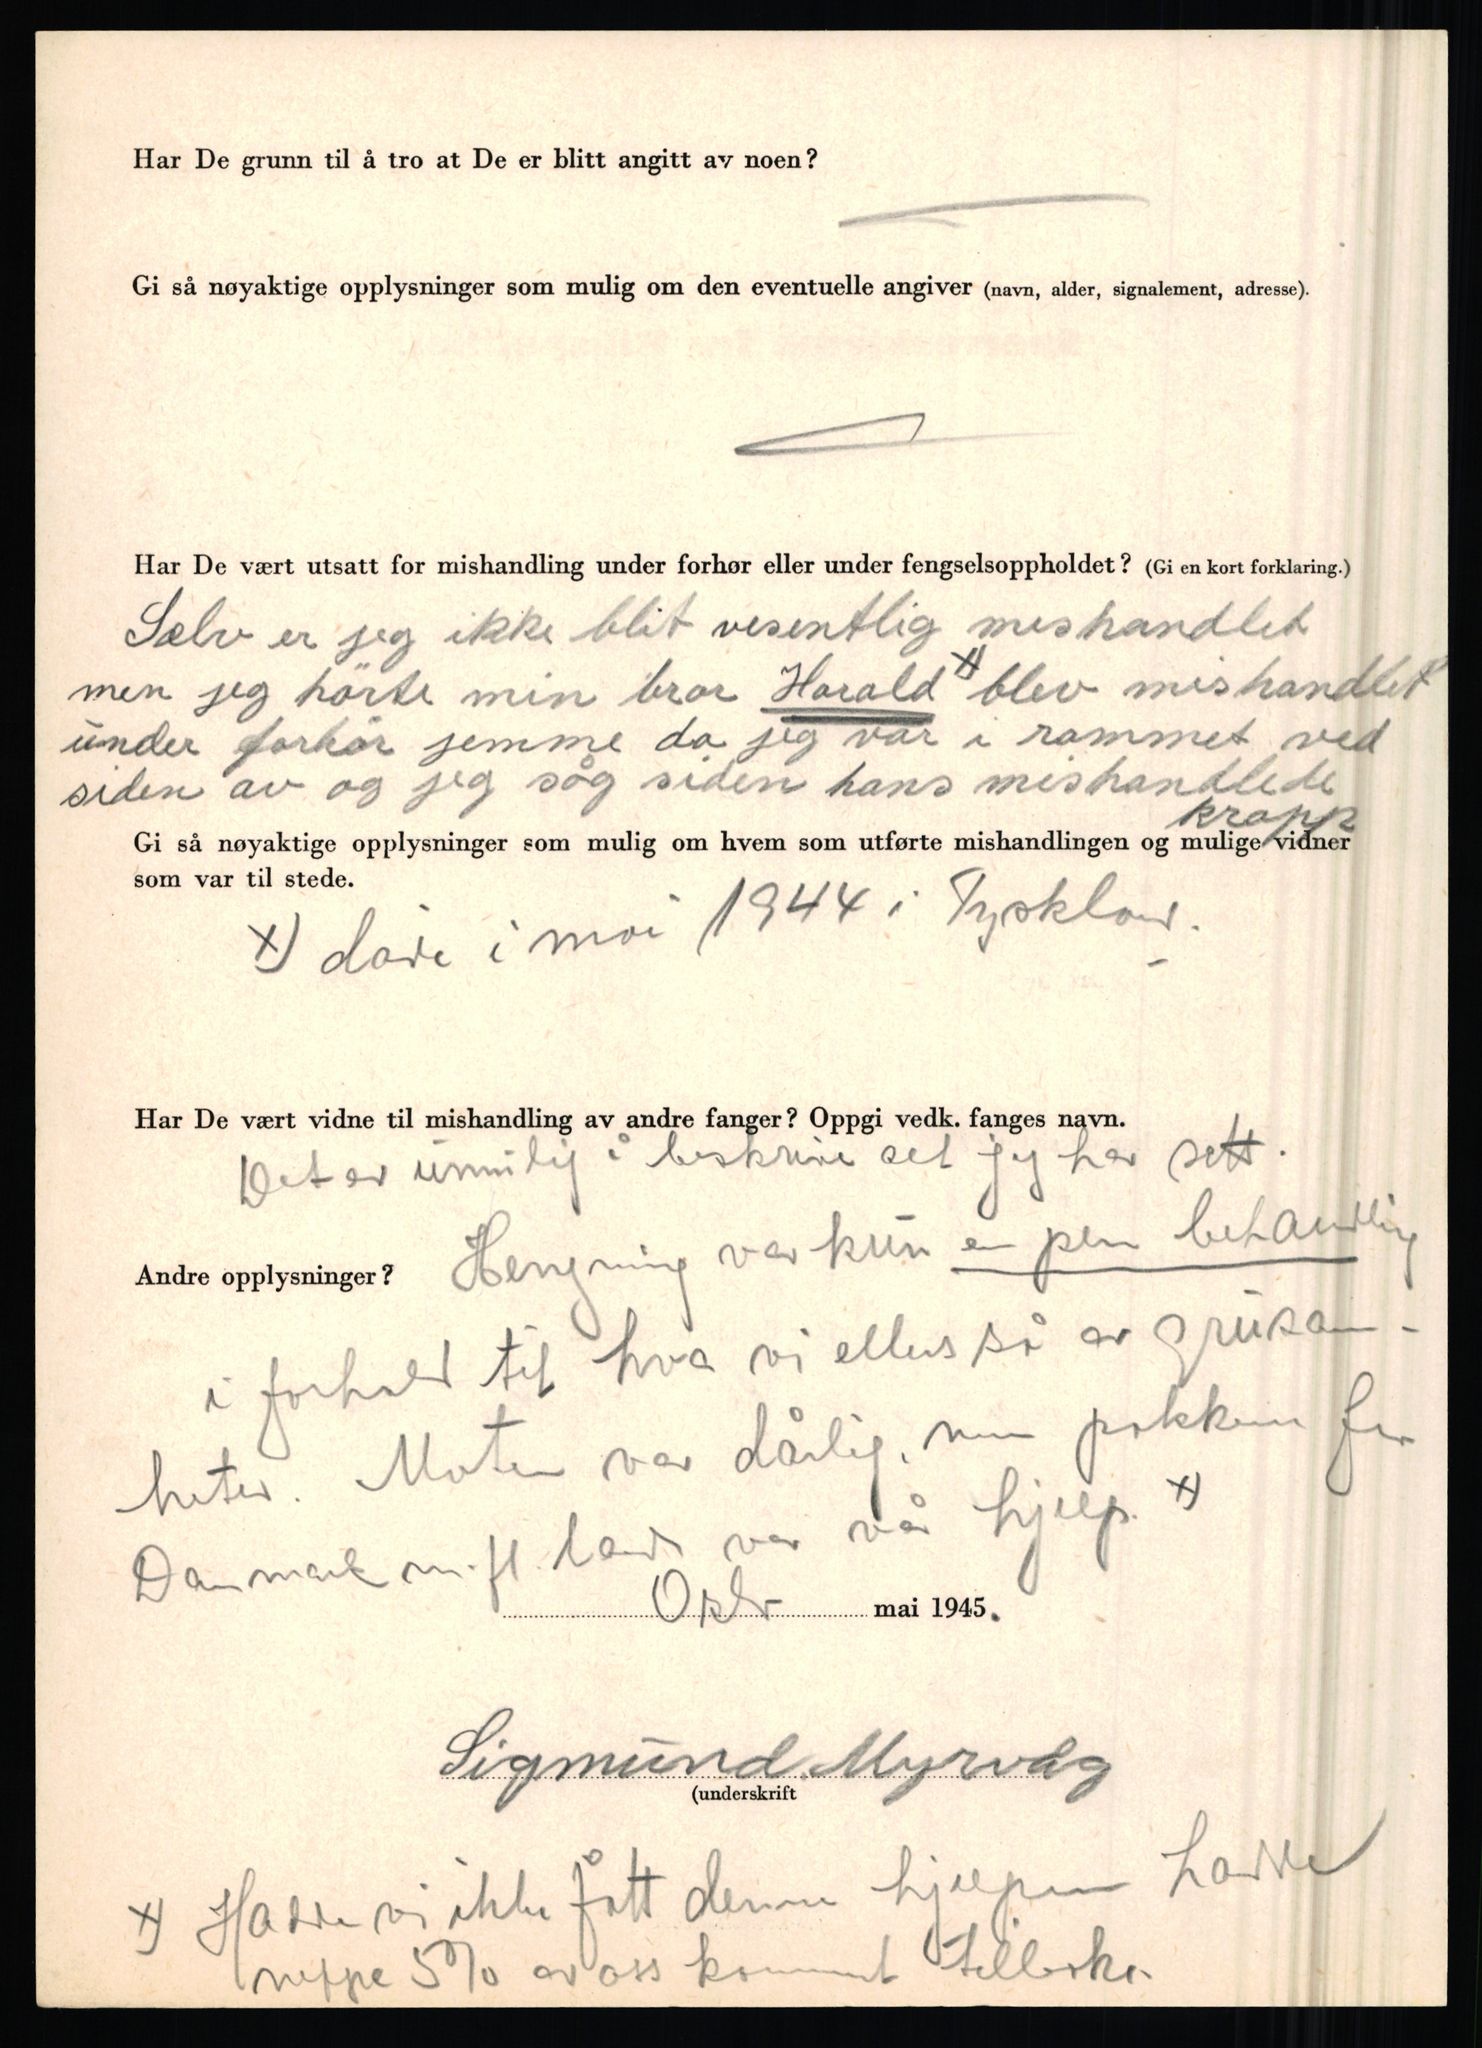 Har De grunn til å tro at De er blitt angitt av noen?
Gi så nøyaktige opplysninger som mulig om den eventuelle angiver (navn, alder, signalement, adresse).
Har De vært utsatt for mishandling under forhør eller under fengselsoppholdet? (Gi en kort forklaring.)
Selv er jeg ikke blit vesentlig mishandlet
men jeg hörte min bror Harald x) blev mishandlet
under forhör jemme da jeg var i rommet ved
siden av og jeg såg siden hans mishandlede
kropp
Gi så nøyaktige opplysninger som mulig om hvem som utførte mishandlingen og mulige vidner
som var til stede.
x) døde i mai 1944 i Tyskland.
Har De vært vidne til mishandling av andre fanger? Oppgi vedk. fanges navn.
Det er umulig å beskrive det jeg har sett.
Andre opplysninger? Hengning var kun en pen behandling
i forhold til hva vi ellers så av grusom-
heter. Maten var dårlig, men pakkene fra
Danmark m.fl. land var vår hjelp. x)
Oslo mai 1945.
Sigmund Myrvåg
(underskrift
x) Hadde vi ikke fått denne hjelpen hadde
neppe 5% av oss kommet tilbake.